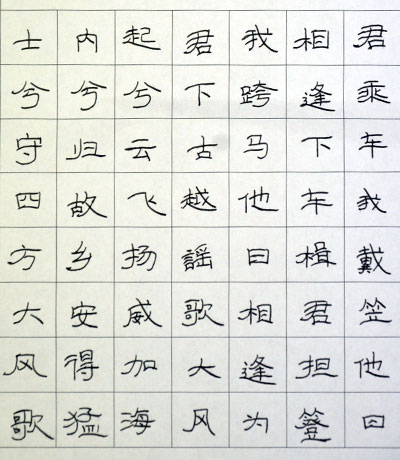 君乘车我戴笠他日
相逢下车楫君担簦
我跨马他日相逢为
君下古越謡歌大风
起兮云飞扬威加海
内兮归故乡安得猛
士兮守四方大风歌